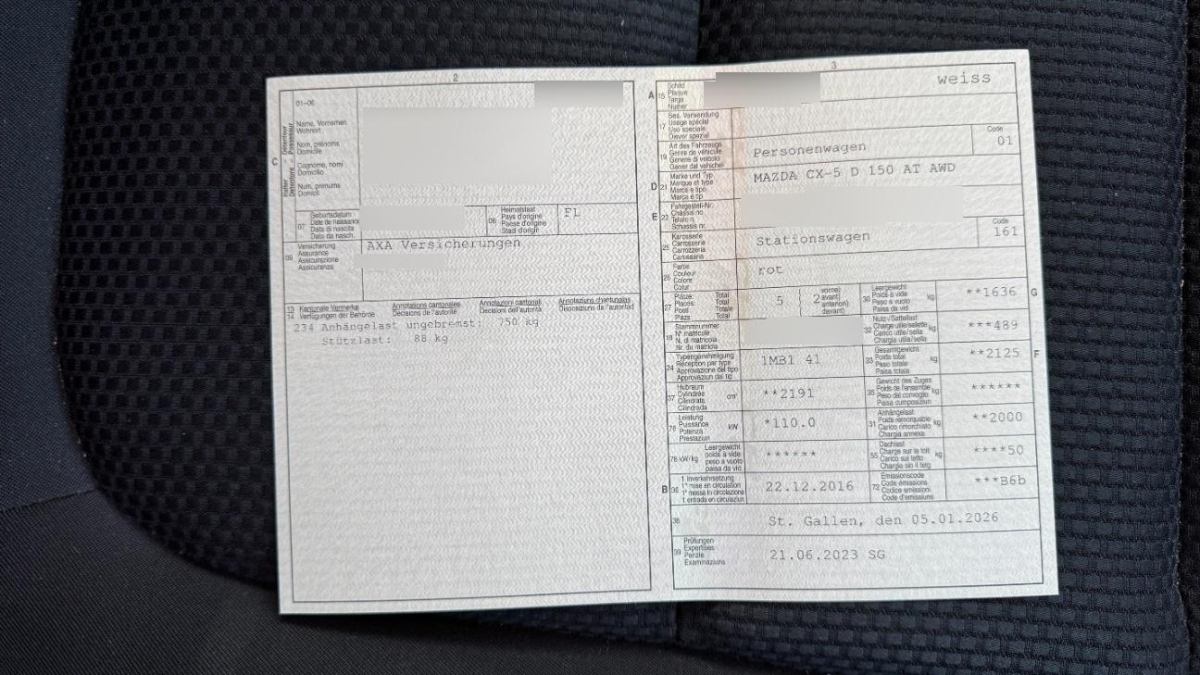 2
01-06
C
Name, Vornamen
Wohnort
Nom, prénoms
Domicile
Cognome, nomi
Domicilio
Num, prenums
Domicil
07
Geburtsdatum
Date de naissance
Data di nascita
Data da nasch.
08
Heimatstaat
Pays d'origine
Paese d'origine
Stadi d'origin
FL
09
Versicherung
Assurance
Assicurazione
Assicuranza
AXA Versicherungen
13
14
Kantonale Vermerke
Verfügungen der Behörde
Annotations cantonales
Décisions de l'autorité
Annotazioni cantonali
Decisioni dell'autorità
Annotaziuns chantunalas
Disposiziuns da l'autoritad
234 Anhängelast ungebremst: 750 kg
Stützlast: 88 kg
3
A
15
Schild
Plaque
Targa
Numer
weiss
17
Bes. Verwendung
Usage spécial
Uso speciale
Diever spezial
19
Art des Fahrzeugs
Genre de véhicule
Genere di veicolo
Gener dal vehichel
Personenwagen
Code
01
D
21
Marke und Typ
Marque et type
Marca e tipo
Marca e tip
MAZDA CX-5 D 150 AT AWD
E
23
Fahrgestell-Nr.
Châssis no
Telaio n.
Schassis nr.
25
Karosserie
Carrosserie
Carrozzeria
Carossaria
Stationswagen
Code
161
26
Farbe
Couleur
Colore
Colur
rot
27
Plätze: Total
Places: Total
Posti Totale
Plazs Total
5
2
vorne)
avant)
anteriori)
davant)
30
Leergewicht
Poids à vide
Peso a vuoto
Paisa da vid
kg
**1636
G
18
Stammnummer
N° matricule
N. di matricola
Nr. da matricla
32
Nutz-/Sattellast
Charge utile/sellette
Carico utile/sella
Chargia utila/sella
kg
***489
24
Typengenehmigung
Réception par type
Approvazione del tipo
Approvaziun dal tip
1MB1 41
33
Gesamtgewicht
Poids total
Peso totale
Paisa totala
kg
**2125
F
37
Hubraum
Cylindrée
Cilindrata
Cilindrada
cm³
**2191
35
Gewicht des Zuges
Poids de l'ensemble
Peso del convoglio
Paisa cumposiziun
kg
******
76
Leistung
Puissance
Potenza
Prestaziun
kW
*110.0
31
Anhängelast
Poids remorquable
Carico rimorchiato
Chargia annexa
kg
**2000
78
kW/kg
Leergewicht
poids à vide
peso a vuoto
paisa da vid
******
55
Dachlast
Charge sur le toit
Carico sul tetto
Chargia sin il tetg
kg
****50
B
36
1. Inverkehrsetzung
1re mise en circulation
1a messa in circolazione
1. entrada en circulaziun
22.12.2016
72
Emissionscode
Code émissions
Codice emissioni
Code d'emissiuns
***B6b
38
St. Gallen, den 05.01.2026
39
Prüfungen
Expertises
Perizie
Examinaziuns
21.06.2023 SG